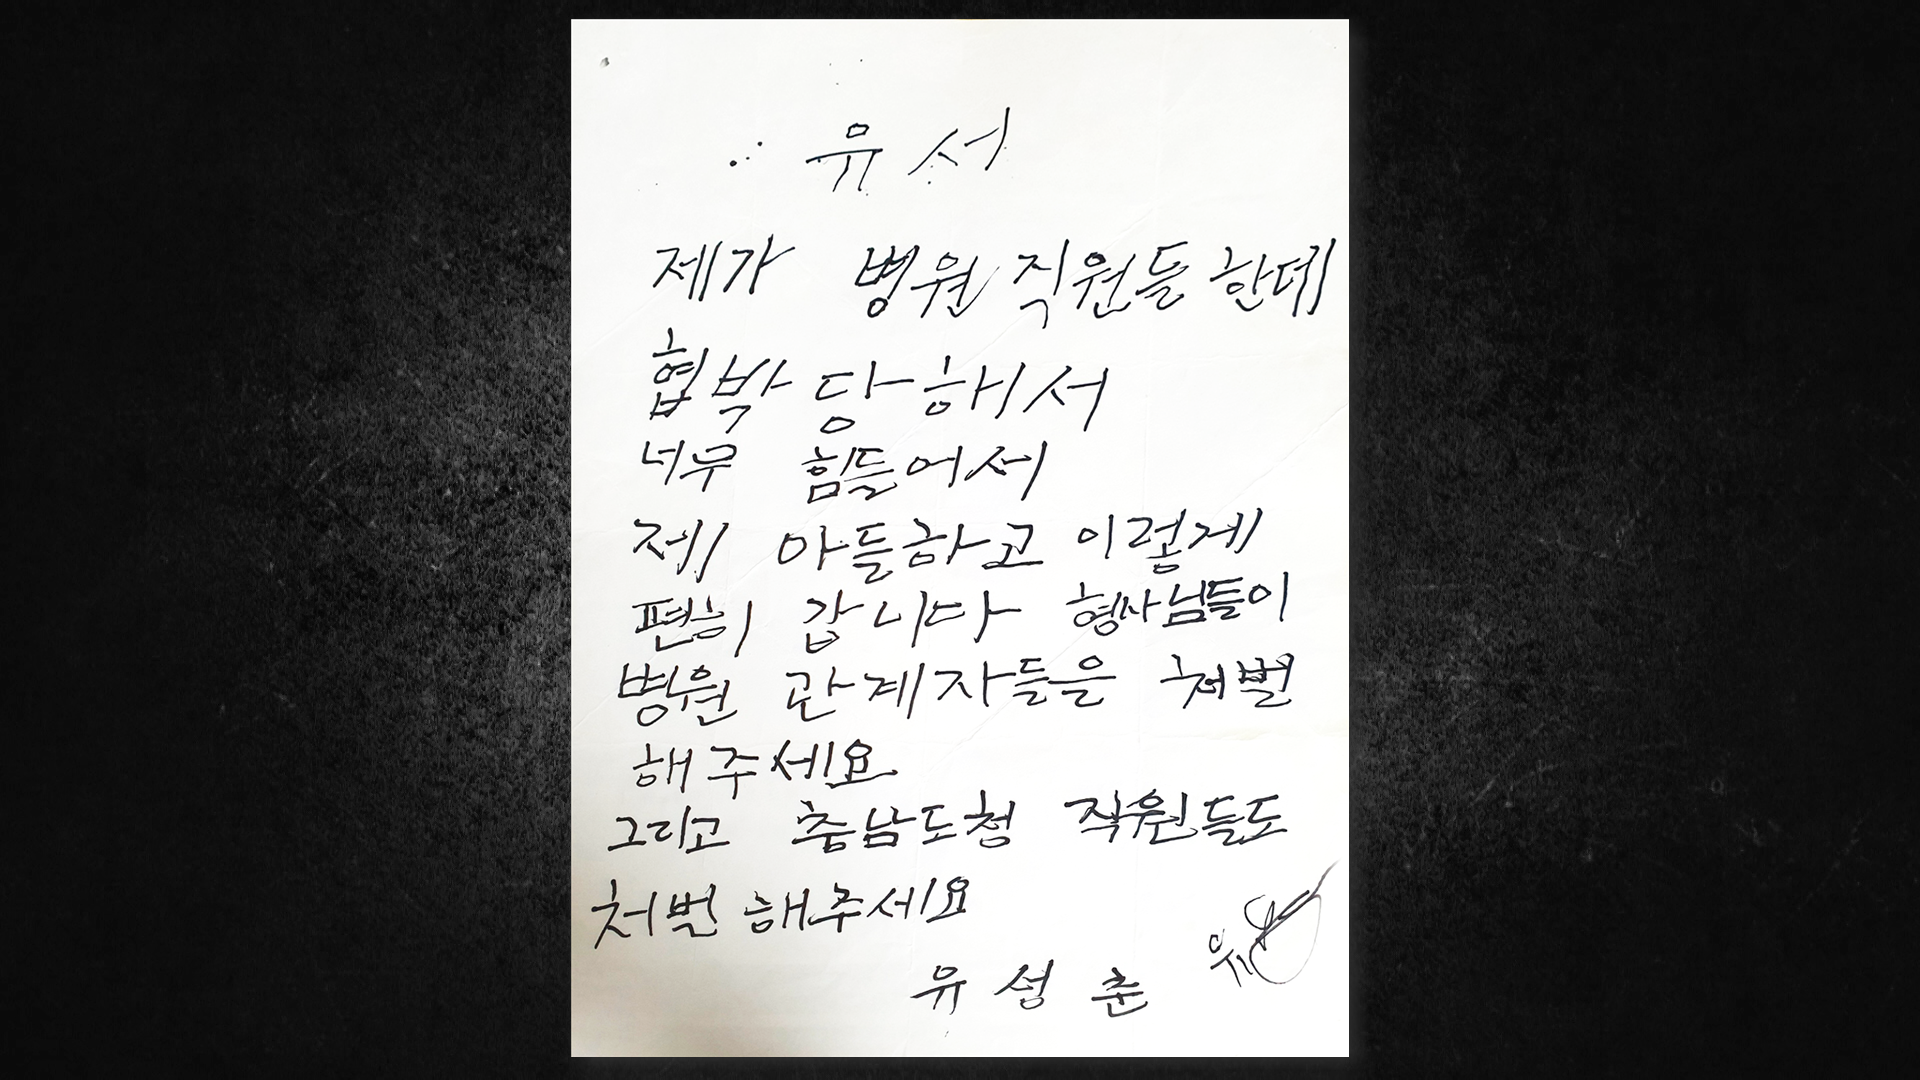 유서
제가 병원 직원들 한데
협박 당해서
너무 힘들어서
제 아들하고 이렇게
편히 갑니다 형사님들이
병원 관계자들은 처벌
해주세요
그리고 충남도청 직원들도
처벌 해주세요
유성춘